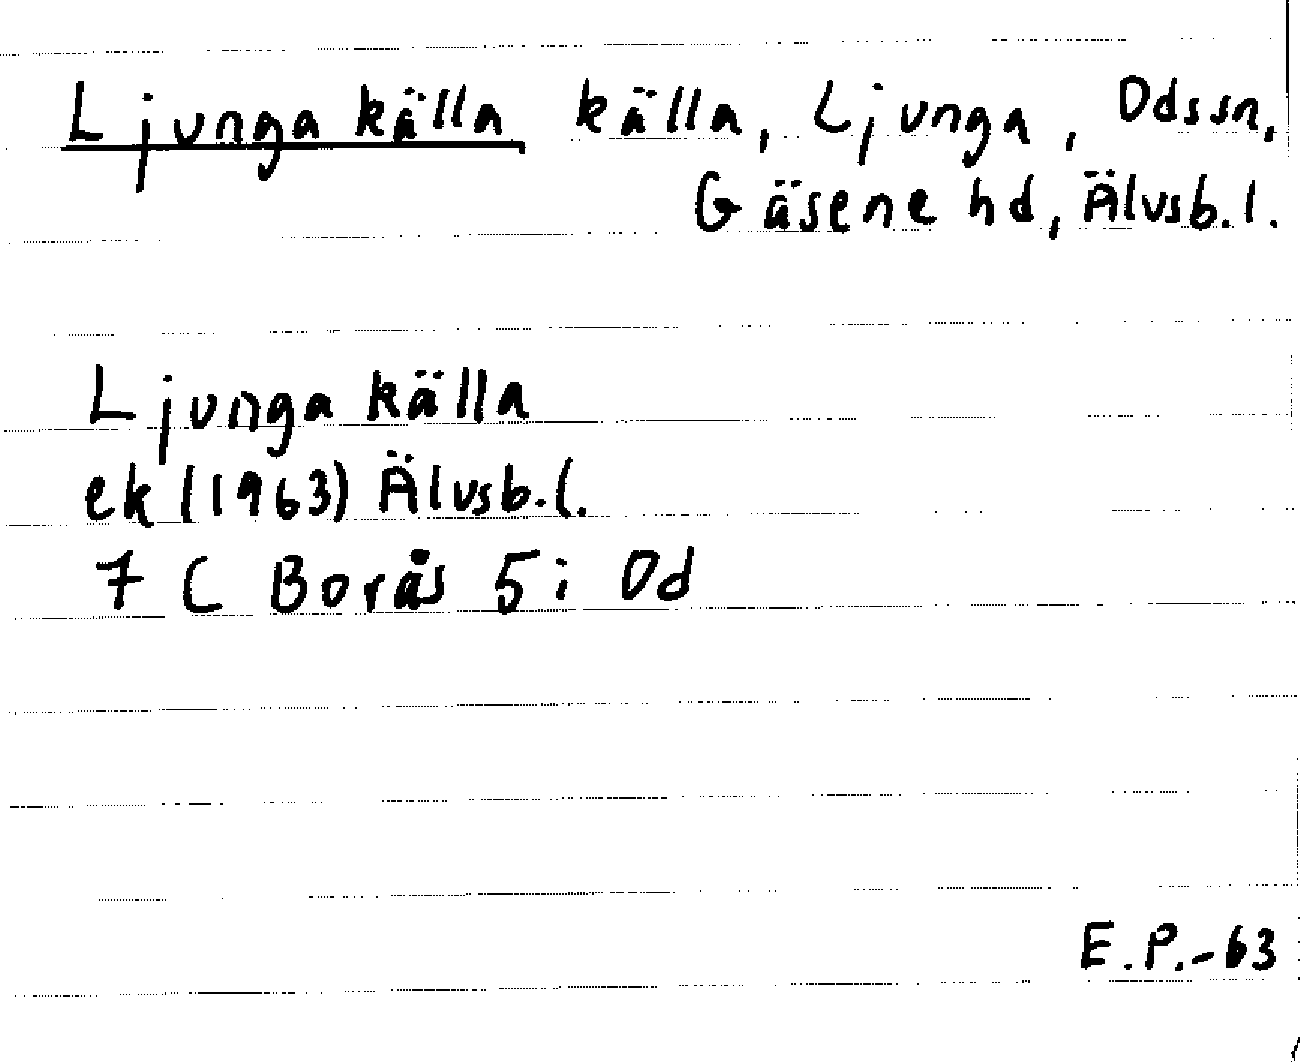 Ljunga källa källa, Ljunga, Od ssn,
Gäsene hd, Älvsb. l.
Ljunga källa
ek (1963) Älvsb. l.
7 C Borås 5 i Od
E.P.-63